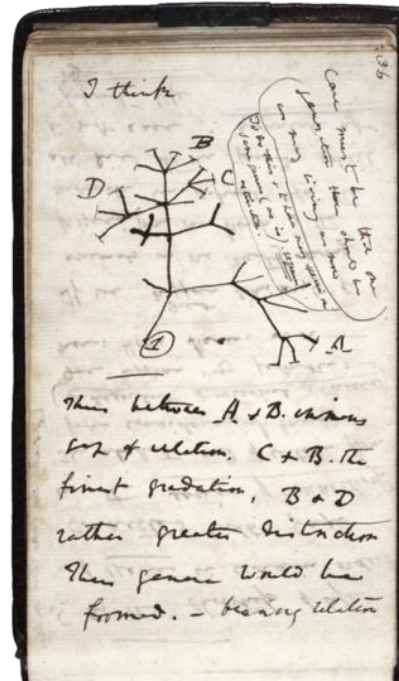 36
I think
Case must be that one
generation then should be
as many living as now
To do this & to have many species in
same genus (as is). requires
extinction
B
C
D
A
1
Thus between A & B. immens
gap of relation. C & B. the
finest gradation, B & D
rather greater distinction
Thus genera would be
formed. — bearing relation